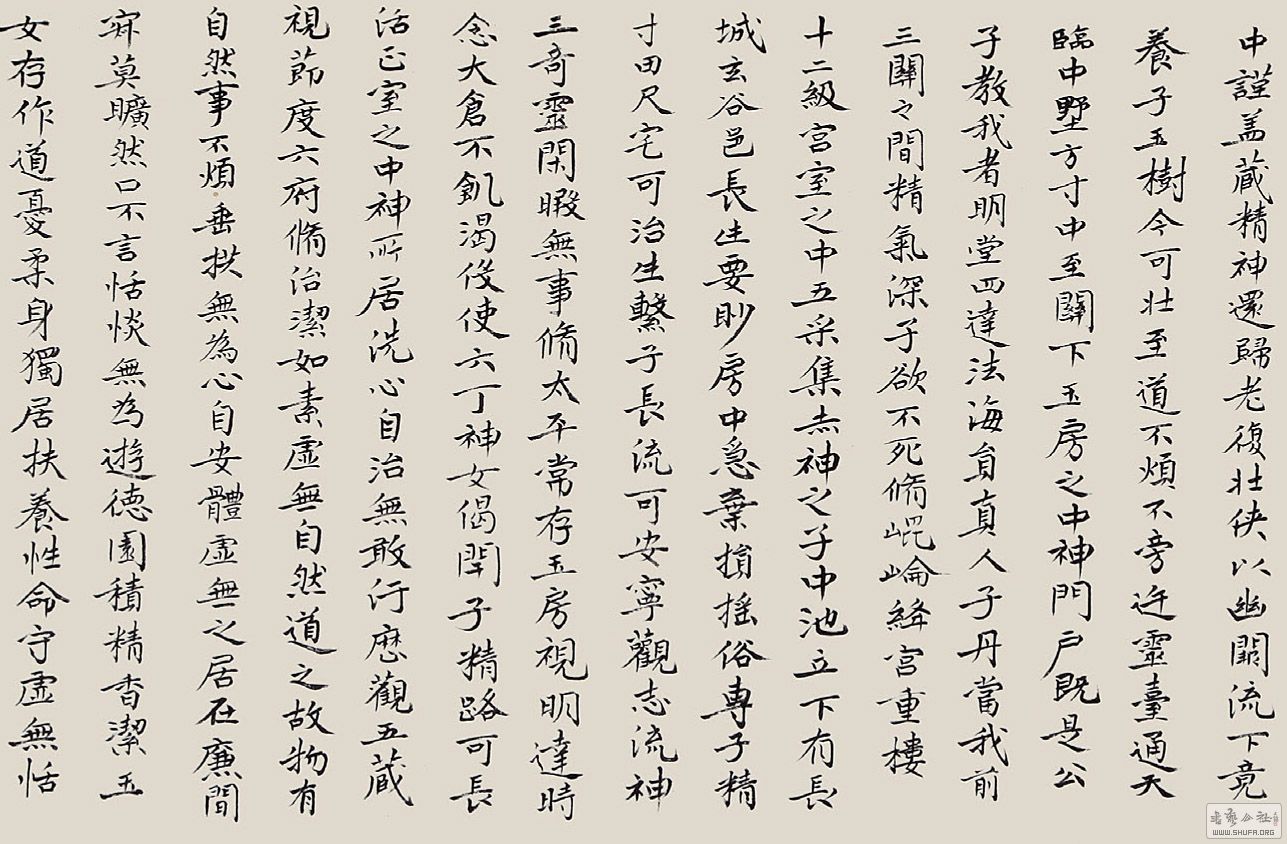 中謹盖藏精神還歸老復壯俠以幽闕流下竟
養子玉樹令可壯至道不煩不旁迕靈臺通天
臨中野方寸中至關下玉房之中神門戶既是公
子教我者明堂四達法海員真人子丹當我前
三關之間精氣深子欲不死脩崐崘絳宮重樓
十二級宮室之中五采集赤神之子中池立下有長
城玄谷邑長生要眇房中急棄捐搖俗專子精
寸田尺宅可治生繫子長流可安寧觀志流神
三奇靈閑暇無事脩太平常存玉房視明達時
念大倉不飢渴伇使六丁神女偈閉子精路可長
活正室之中神所居洗心自治無敢行歷觀五藏
視節度六府脩治潔如素虛無自然道之故物有
自然事不煩垂拱無為心自安體虛無之居在廉間
寂莫曠然口不言恬惔無為遊德園積精香潔玉
女存作道憂柔身獨居扶養性命守虛無恬
書藝公社
WWW.SHUFA.ORG